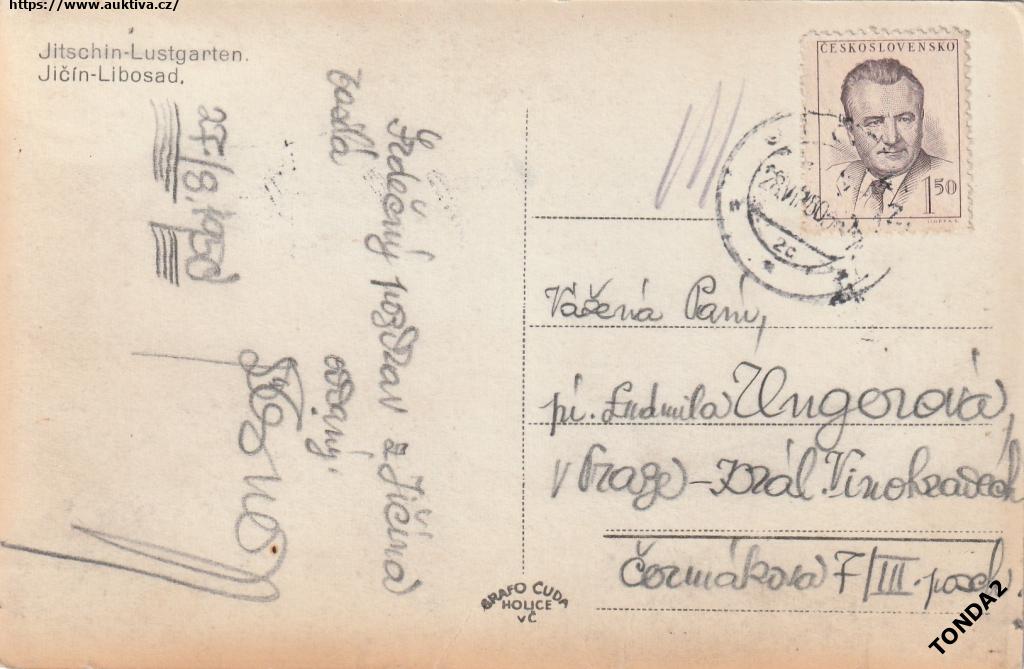 https://www.auktiva.cz/
Jitschin-Lustgarten.
Jičín-Libosad.
ČESKOSLOVENSKO
1 50
27/8. 1950
Srdečný pozdrav z Jičína
zasílá
oddaný
Vážená Paní,
pí. Ludmila Ungerová
v Praze - Král. Vinohradech
Čermákova 7/III. posch.
GRAFO ČUDA
HOLICE
VČ
TONDA2